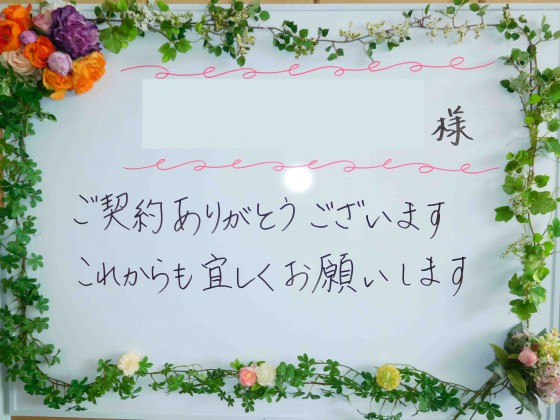 様
ご契約ありがとうございます
これからも宜しくお願いします